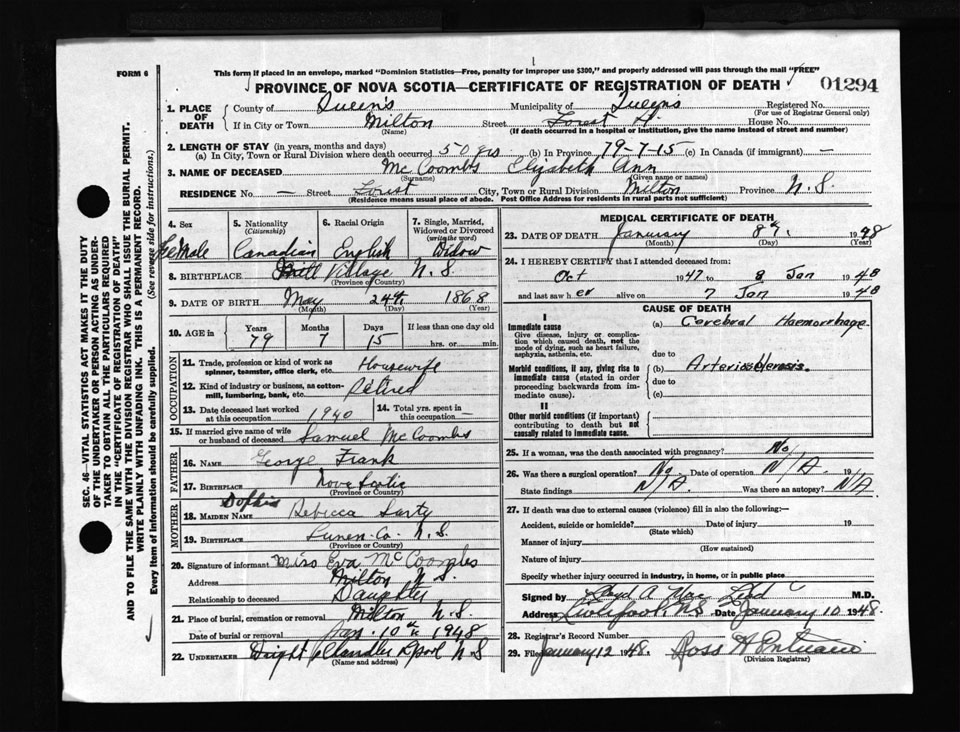 FORM 6
This form if placed in an envelope, marked "Dominion Statistics—Free, penalty for improper use $300," and properly addressed will pass through the mail "FREE"
PROVINCE OF NOVA SCOTIA—CERTIFICATE OF REGISTRATION OF DEATH
01294
1. PLACE OF DEATH County of Queens Municipality of Queens Registered No.
(For use of Registrar General only)
If in City or Town Milton Street Forest St. House No.
(Name) (If death occurred in a hospital or institution, give the name instead of street and number)
2. LENGTH OF STAY (in years, months and days)
(a) In City, Town or Rural Division where death occurred 50 yrs (b) In Province 79-7-15 (c) In Canada (if immigrant) —
3. NAME OF DECEASED McCoombs Elizabeth Ann
(Surname) (Given name or names)
RESIDENCE No. — Street Forest City, Town or Rural Division Milton Province N.S.
(Residence means usual place of abode. Post Office Address for residents in rural parts not sufficient)
4. Sex 5. Nationality 6. Racial Origin 7. Single, Married, Widowed or Divorced
(Citizenship) (write the word)
Female Canadian English Widow
8. BIRTHPLACE Mill Village N.S.
(Province or Country)
9. DATE OF BIRTH May 24th 1868
(Month) (Day) (Year)
10. AGE in Years Months Days If less than one day old
79 7 15 hrs. or min.
OCCUPATION
11. Trade, profession or kind of work as spinner, teamster, office clerk, etc. Housewife
12. Kind of industry or business, as cotton-mill, lumbering, bank, etc. Retired
13. Date deceased last worked at this occupation 1940 14. Total yrs. spent in this occupation —
15. If married give name of wife or husband of deceased Samuel McCoombs
FATHER
16. NAME George Frank
17. BIRTHPLACE Nova Scotia
(Province or Country)
MOTHER
18. MAIDEN NAME Sophia Rebecca Sarty
19. BIRTHPLACE Lunen. Co. N.S.
(Province or Country)
20. Signature of informant Miss Eva McCoombs
Address Milton N.S.
Relationship to deceased Daughter
21. Place of burial, cremation or removal Milton N.S.
Date of burial or removal Jan. 10th 1948
22. UNDERTAKER Dwight Chandler Lpool N.S
(Name and address)
MEDICAL CERTIFICATE OF DEATH
23. DATE OF DEATH January 8th. 1948
(Month) (Day) (Year)
24. I HEREBY CERTIFY that I attended deceased from:
Oct 1947 to 8 Jan 1948
and last saw her alive on 7 Jan 1948
CAUSE OF DEATH
I
Immediate cause (a) Cerebral Haemorrhage
Give disease, injury or complication which caused death, not the mode of dying, such as heart failure, asphyxia, asthenia, etc.
due to
Morbid conditions, if any, giving rise to immediate cause (stated in order of proceeding backwards from immediate cause).
(b) Arteriosklerosis.
due to
(c)
II
Other morbid conditions (if important) contributing to death but not causally related to immediate cause.
25. If a woman, was the death associated with pregnancy? No,
26. Was there a surgical operation? No. Date of operation N/A. 19
State findings N/A. Was there an autopsy? N/A
27. If death was due to external causes (violence) fill in also the following:—
Accident, suicide or homicide? Date of injury 19
(State which)
Manner of injury
(How sustained)
Nature of injury
Specify whether injury occurred in industry, in home, or in public place
Signed by Lloyd A. Mac Leod M.D.
Address Liverpool, N.S. January 10 1948.
28. Registrar's Record Number
29. Filed January 12 1948. Ross H
(Division Registrar)
SEC. 46—VITAL STATISTICS ACT MAKES IT THE DUTY
OF THE UNDERTAKER OR PERSON ACTING AS UNDER-
TAKER TO OBTAIN ALL THE PARTICULARS REQUIRED
IN THE "CERTIFICATE OF REGISTRATION OF DEATH"
AND TO FILE THE SAME WITH THE DIVISION REGISTRAR WHO SHALL ISSUE THE BURIAL PERMIT.
WRITE PLAINLY WITH UNFADING INK. THIS IS A PERMANENT RECORD.
Every item of information should be carefully supplied. (See reverse side for instructions.)